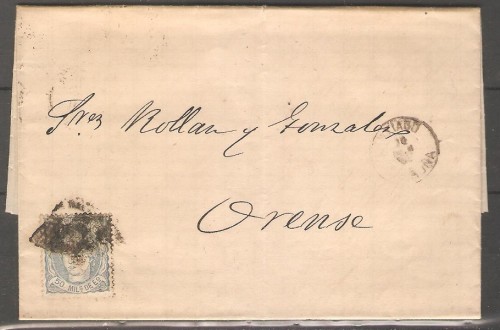 Sres Rollan y Gonzalez
Orense
50 MILS DE E.